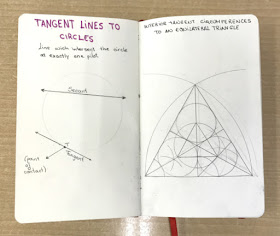 TANGENT LINES TO
CIRCLES
line which intersect the circle
at exactly one point.
Secant
T
Tangent
(point
of
contact)
INTERIOR TANGENT CIRCUMFERENCES
TO AN EQUILATERAL TRIANGLE